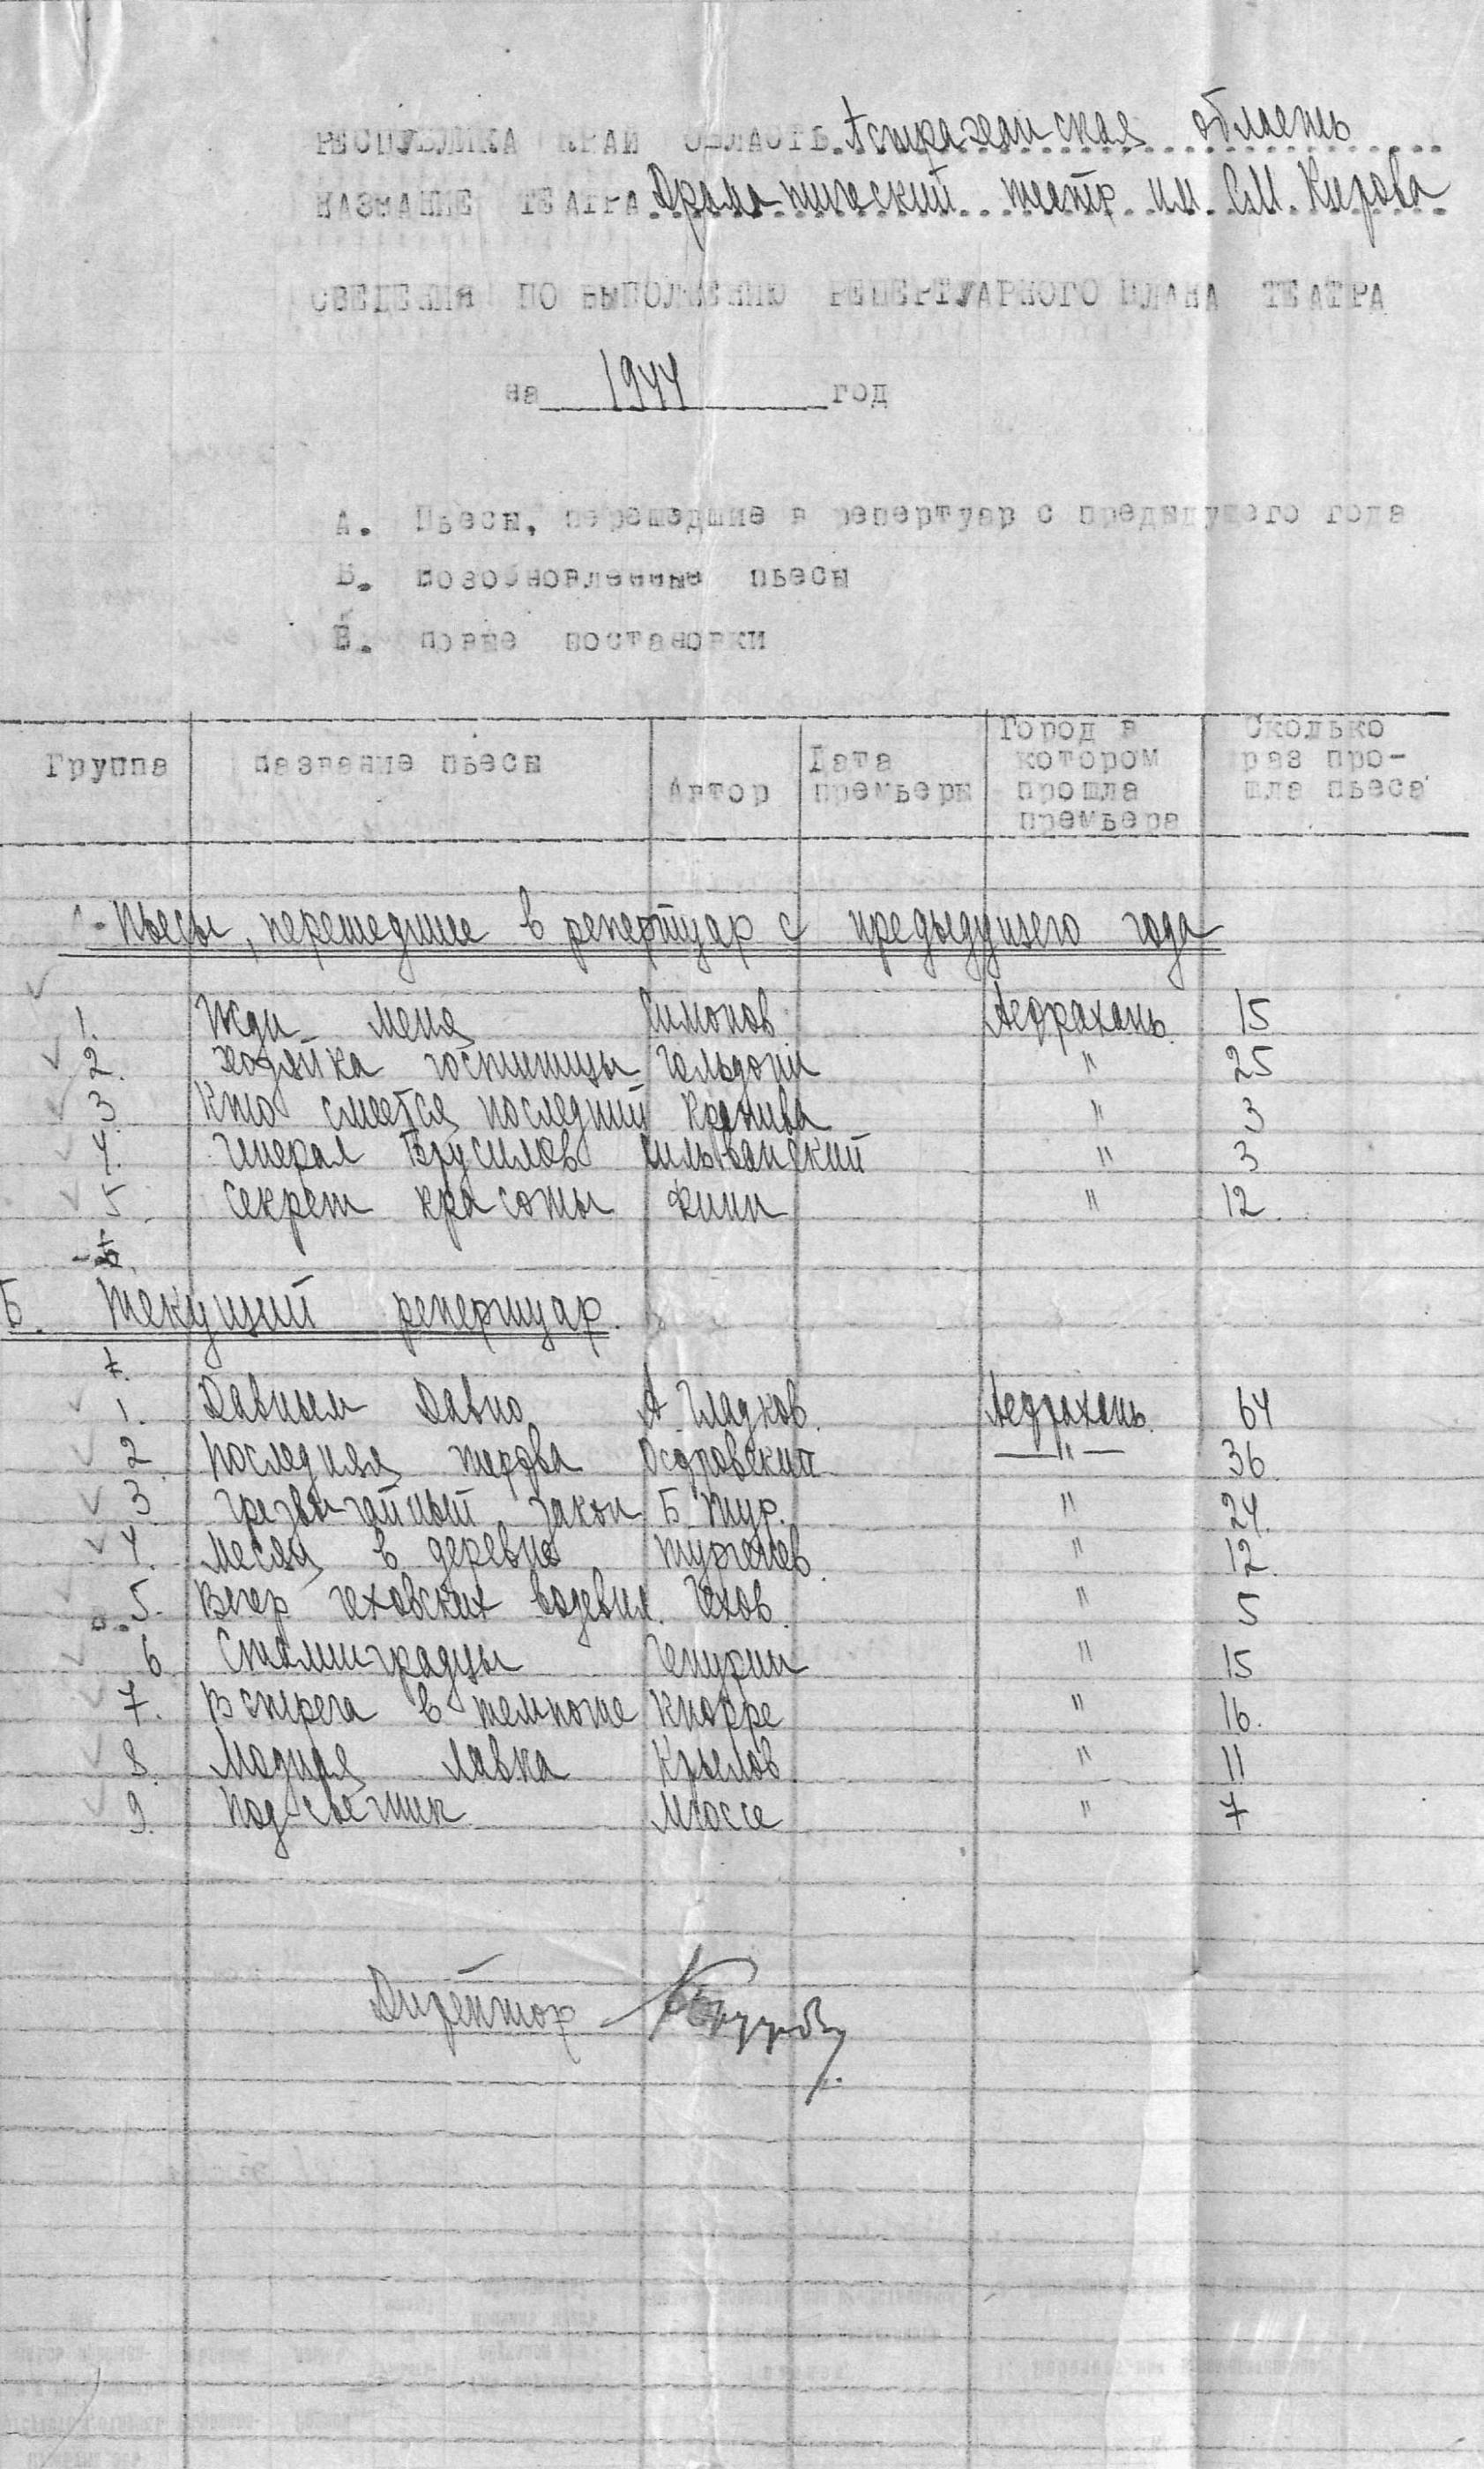 РЕСПУБЛИКА КРАЙ ОБЛАСТЬ Астраханская область
НАЗВАНИЕ ТЕАТРА Драматический театр им. С.М. Кирова
СВЕДЕНИЯ ПО ВЫПОЛНЕНИЮ РЕПЕРТУАРНОГО ПЛАНА ТЕАТРА
на 1944 год
А. Пьесы, перешедшие в репертуар с предыдущего года
Б. возобновленные пьесы
В. новые постановки
Группа название пьесы Автор Дата премьеры Город в котором прошла премьера Сколько раз про-шла пьеса
Пьесы, перешедшие в репертуар с предыдущего года
1. Жди меня Симонов Астрахань. 15
2. Хозяйка гостиницы Гольдони " 25
3 Кто смеется последний Крапива " 3
4. Генерал Брусилов Сильванский " 3
5. Секрет красоты Финн " 12.
Б. Текущий репертуар.
1. Давным Давно А. Гладков. Астрахань. 64
2. Последняя жертва Островский — " — 36
3. Чрезвычайный закон Б. Тур. " 24.
4. Месяц в деревне Тургенев. " 12.
5. Вечер чеховских водевил. Чехов. " 5
6 Сталинградцы Чепурин " 15
7. Встреча в темноте Кнорре " 16.
8. Модная лавка Крылов " 11
9. Подсвечник Мюссе " 7
Директор